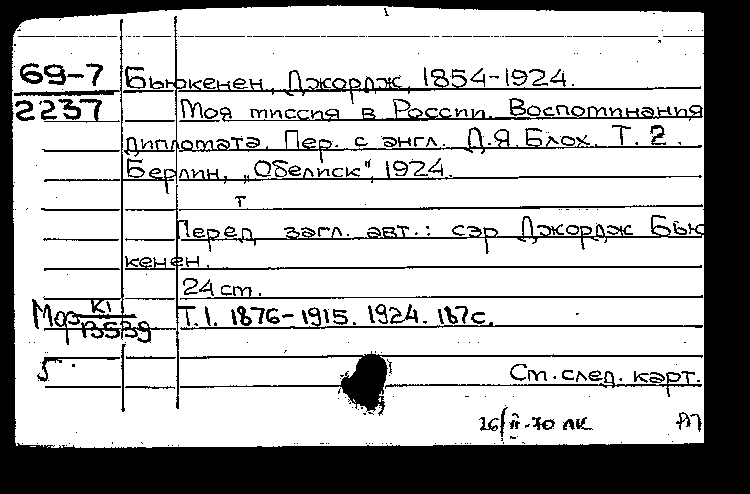 69-7 Бьюкенен, Джордж, 1854-1924.
2237 Моя миссия в России. Воспоминания
дипломата. Пер. с англ. Д.Я. Блох. Т. 2.
Берлин, „Обелиск", 1924.
т
Перед загл. авт.: сэр Джордж Бью
кенен.
24 см.
К1
13539 Т.1. 1876-1915. 1924. 187с.
5.
См. след. карт.
26/II-70 ЛК